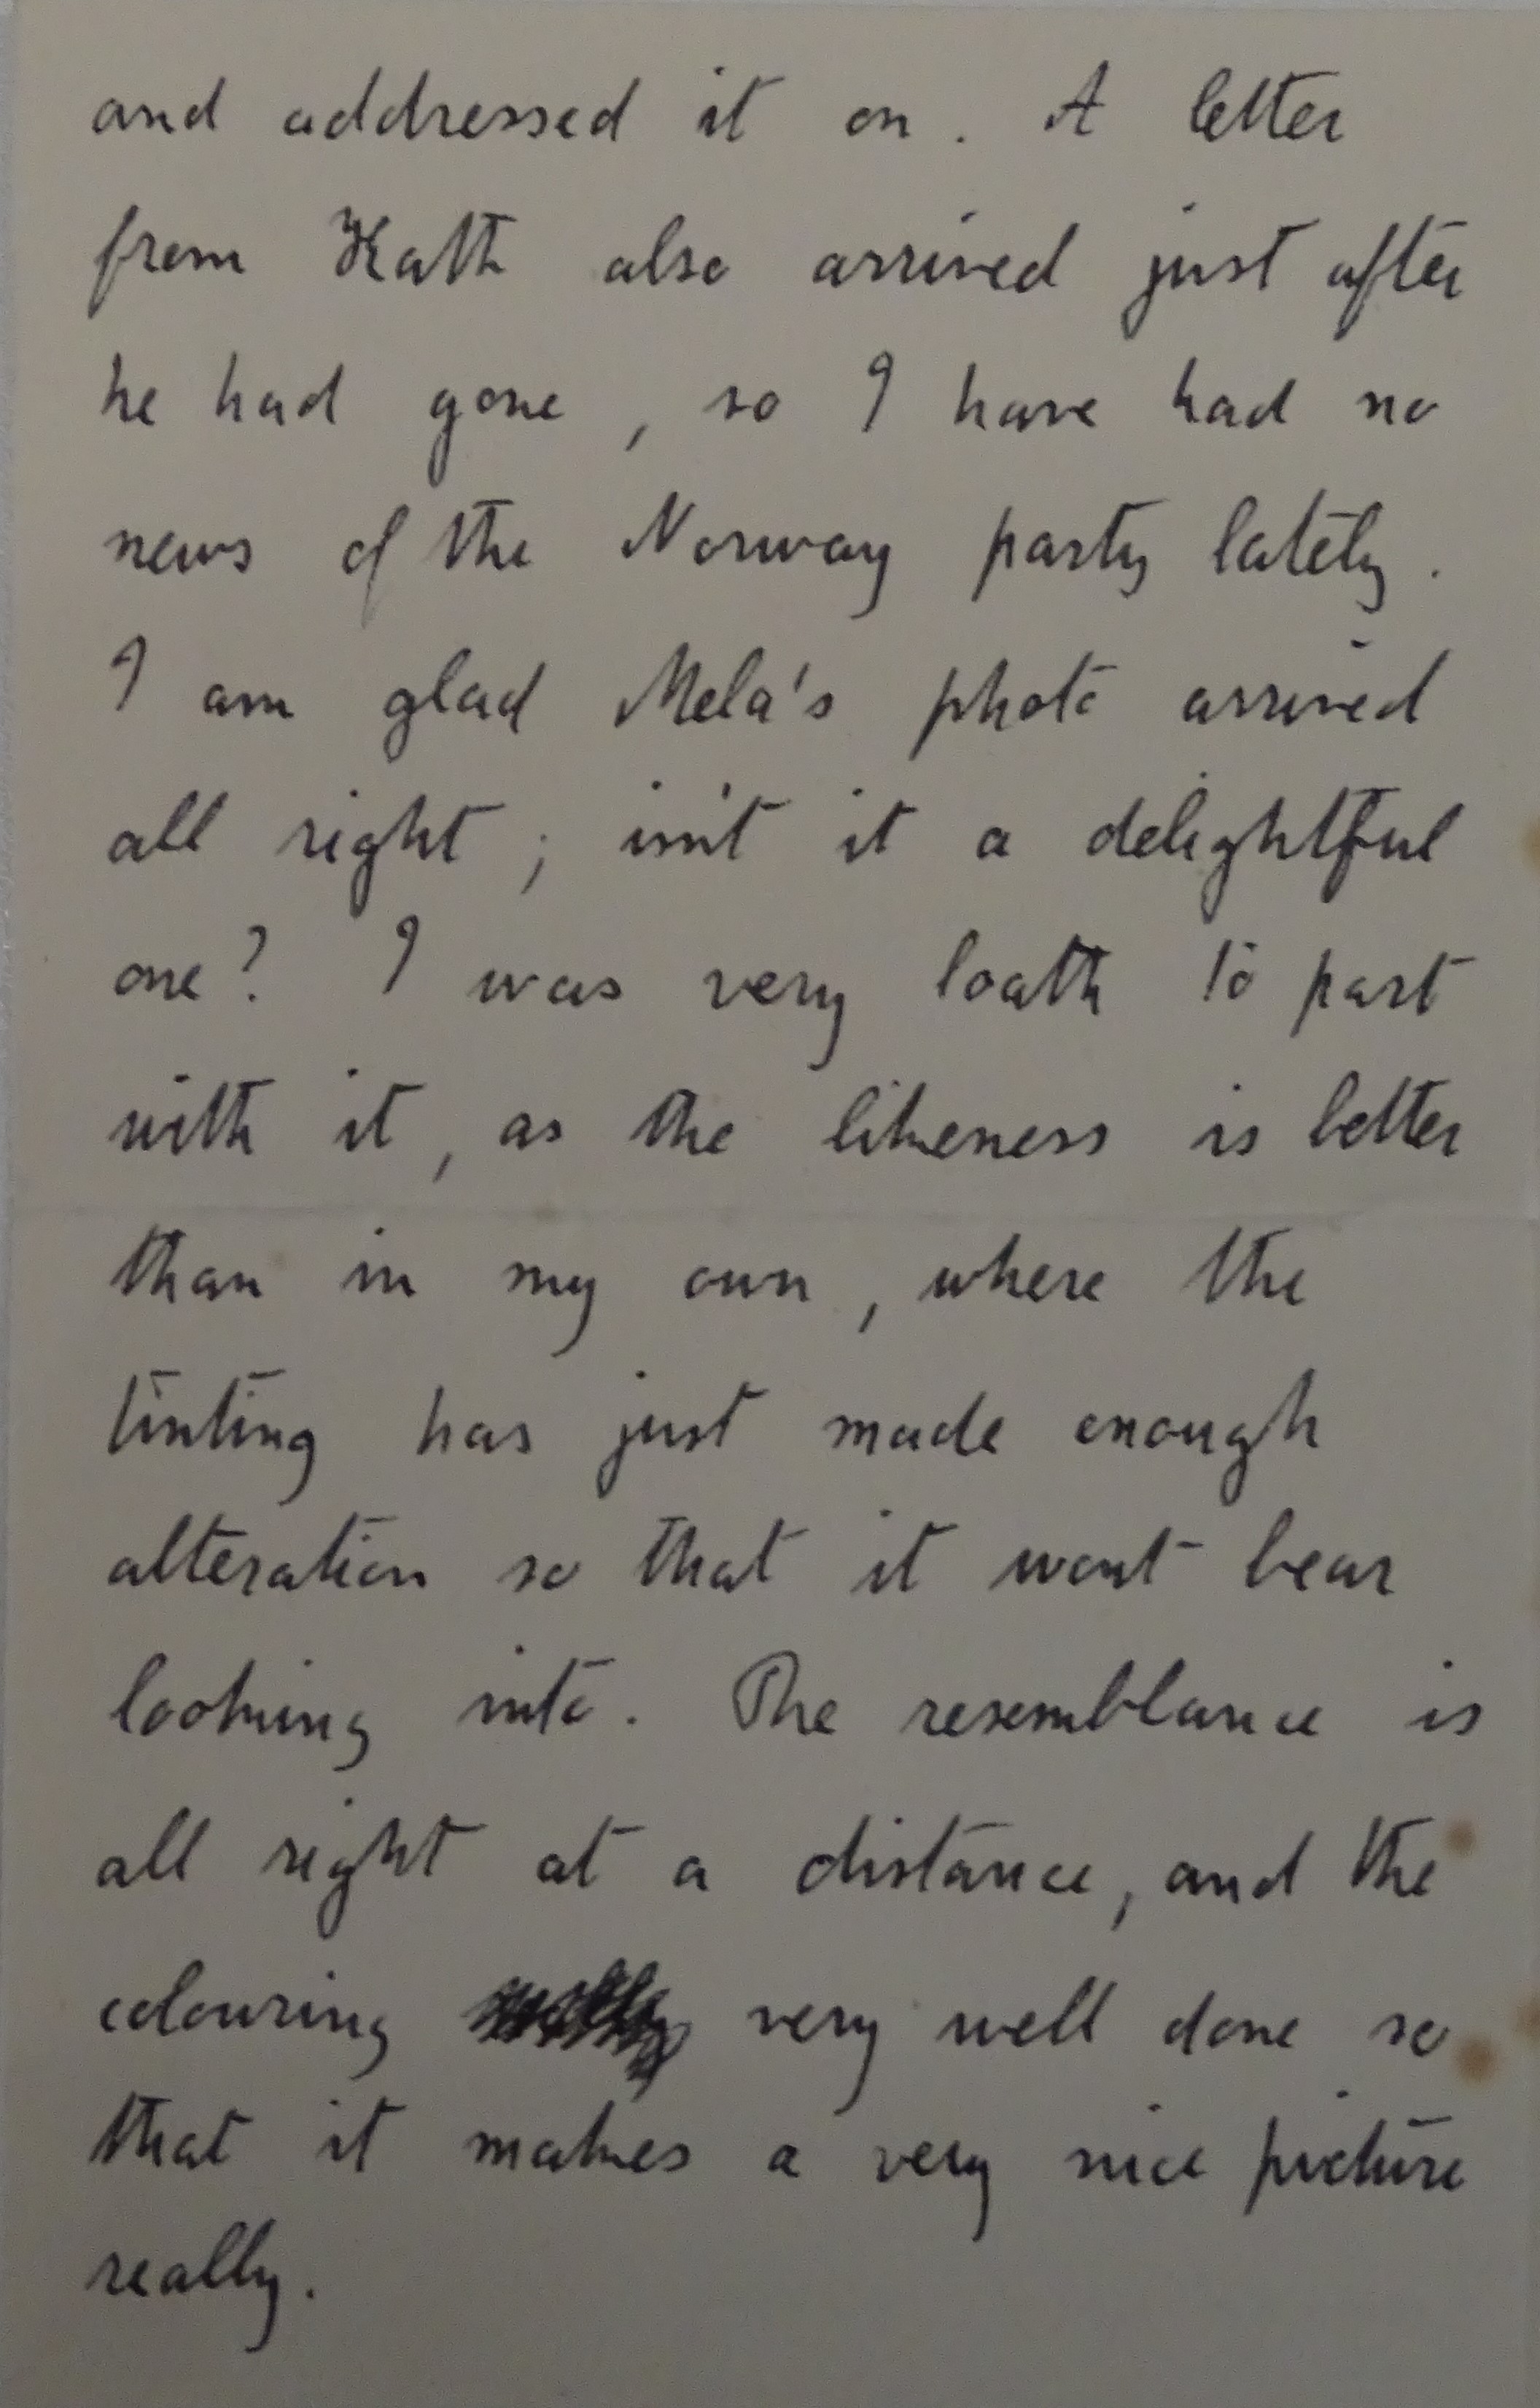 and addressed it on. A letter
from Kath also arrived just after
he had gone, so I have had no
news of the Norway party lately.
I am glad Mela's photo arrived
all right; isn't it a delightful
one? I was very loath to part
with it, as the likeness is better
than in my own, where the
tinting has just made enough
alteration so that it wont bear
looking into. The resemblance is
all right at a distance, and the
colouring very well done so
that it makes a very nice picture
really.